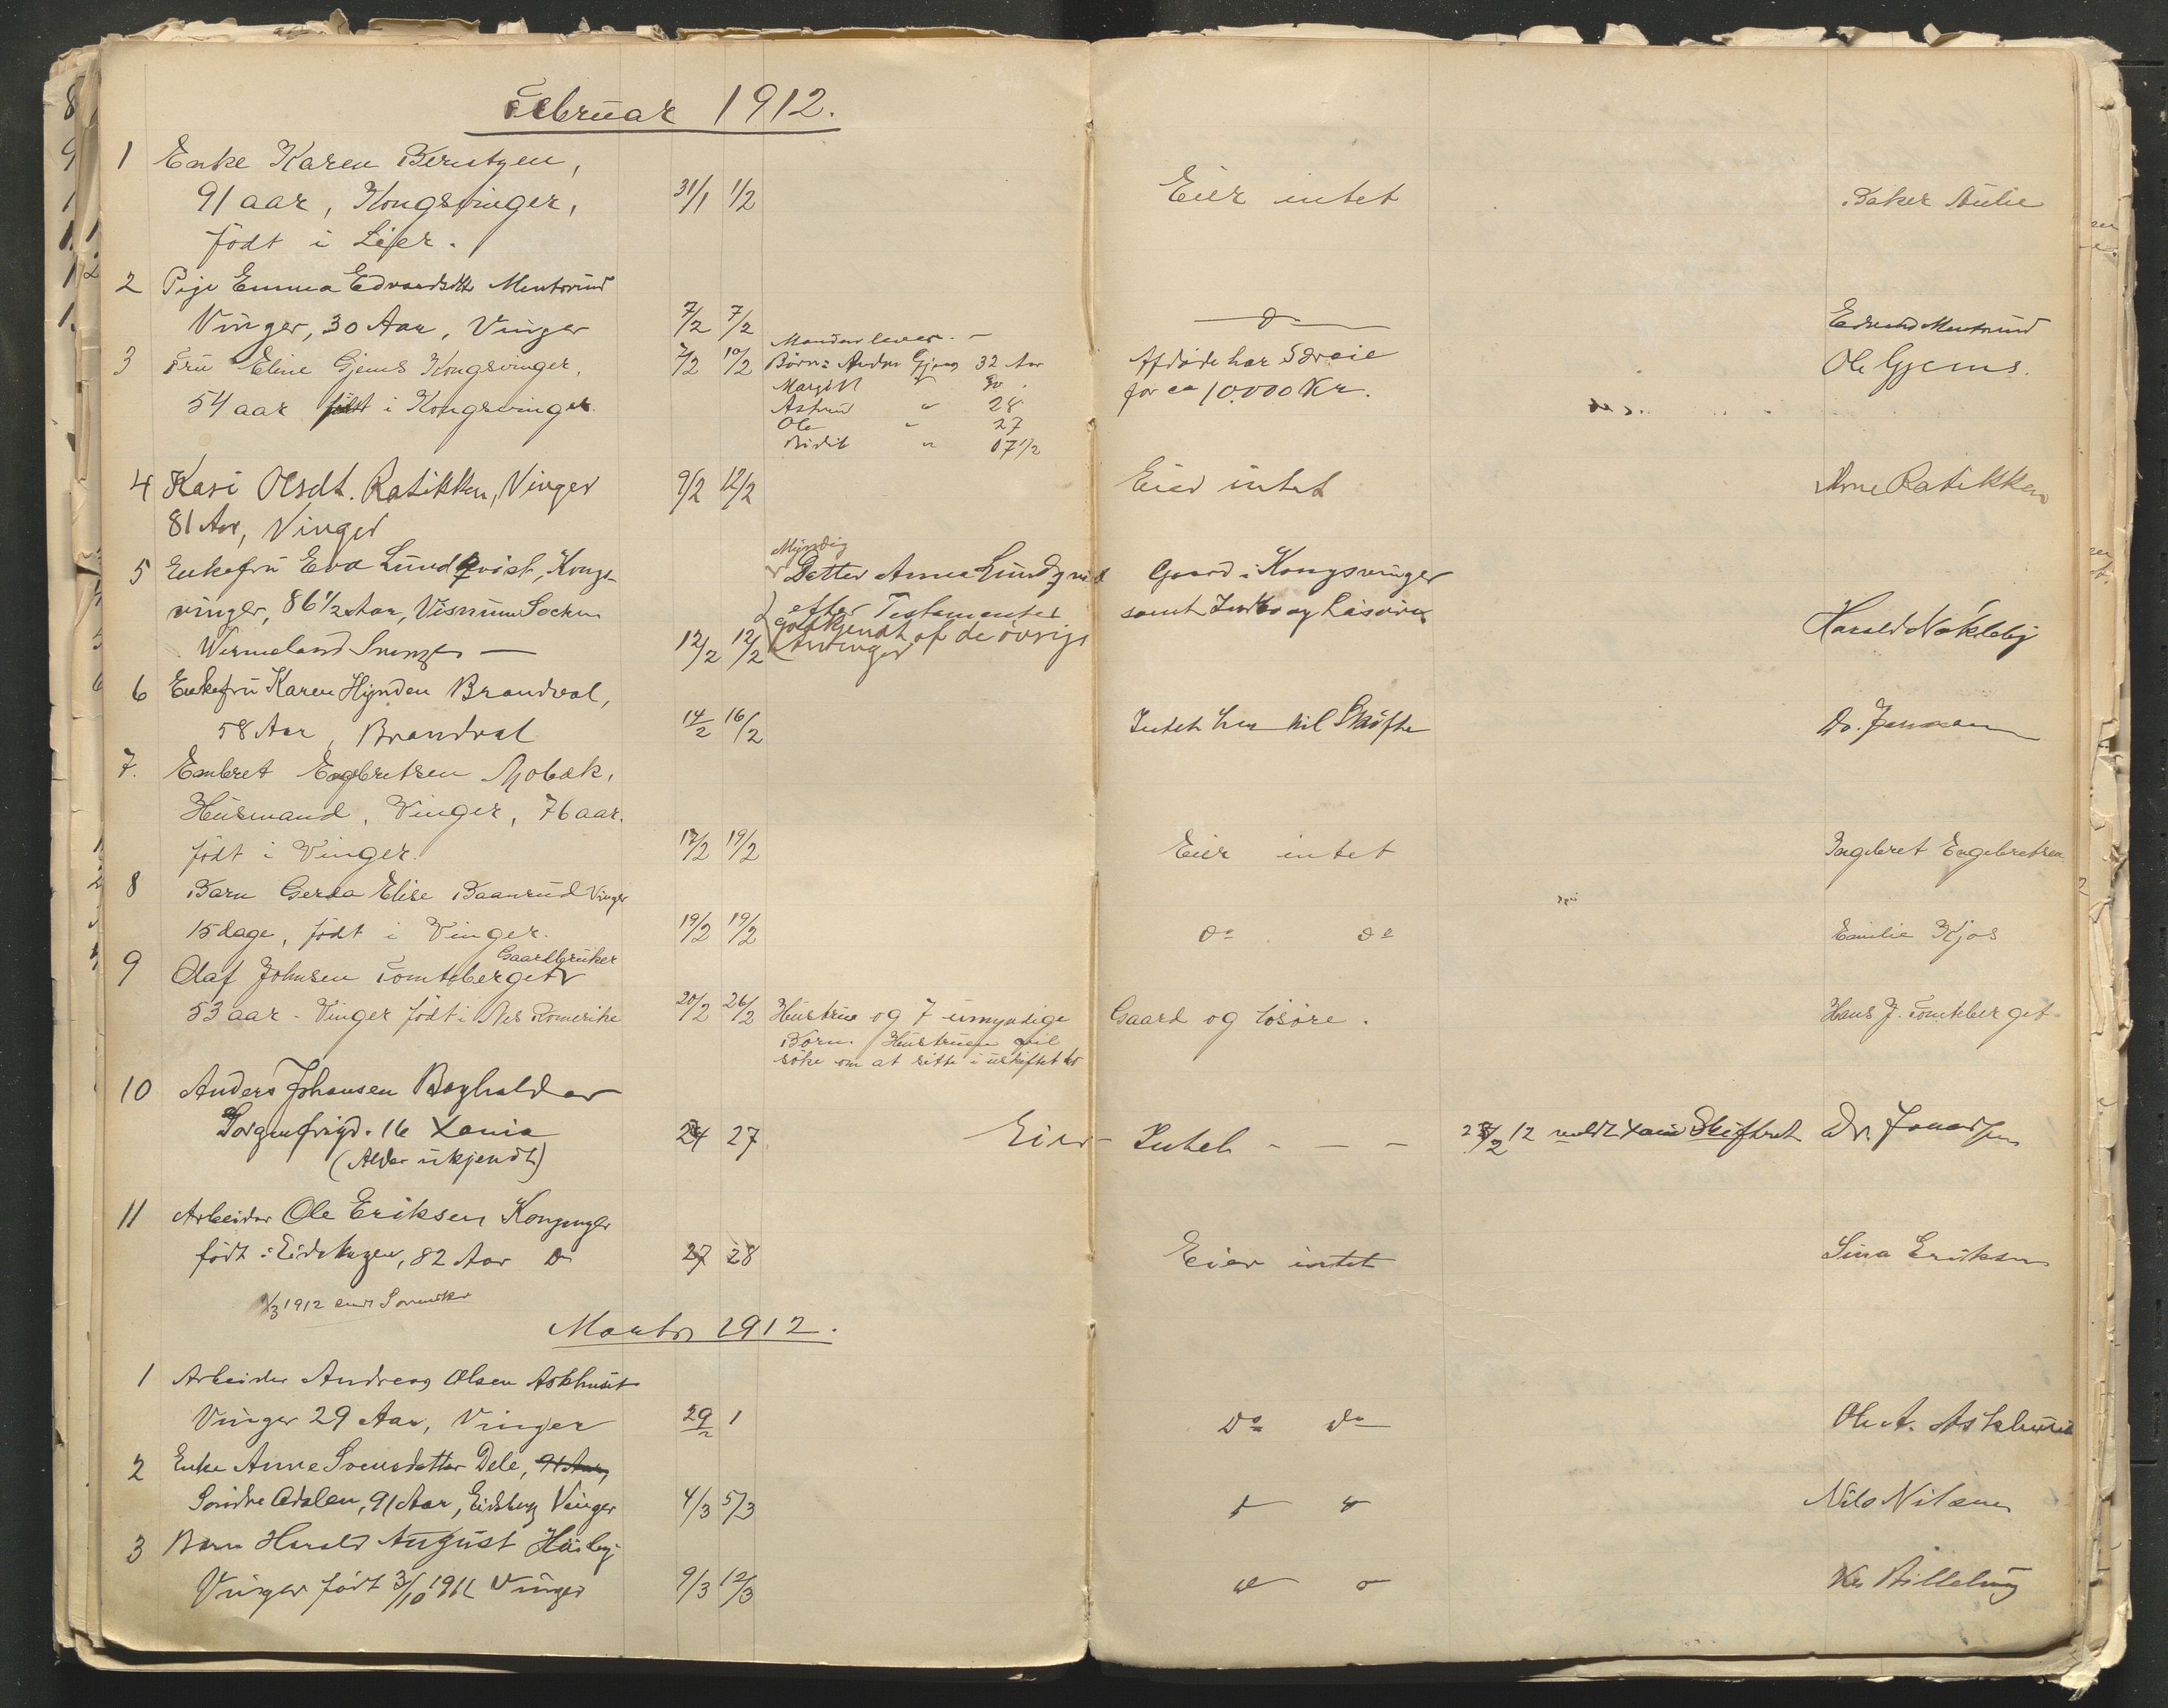 Februar 1912.
1 Enke Karen Berntzen,
91 aar, Kongsvinger, 31/1 1/2 Eier intet Baker Aulie
født i Lier.
2 Pige Emma Edvardsdtr Mentorud
Vinger, 30 Aar, Vinger 7/2 7/2 do Edvard Mentorud
3 Fru Eline Gjems Kongsvinger, 7/2 10/2 Manden lever. -
Børn: Gjems 32 Aar Afdøde har Særeie Ole Gjems.
Margit " 30
54 aar født i Kongsvinger. Astrid " 28 for ca 10.000 Kr.
Ole " 27
" 17 1/2
4 Kari Olsdt. Ratikken, Vinger 9/2 12/2 Eier intet Arne Ratikken
81 Aar, Vinger
5 Enkefru Eva Lundqvist, Kongs- Myndig
Datter Anna Lundqvist Gaard i Kongsvinger
vinger, 86 1/2 Aar, Visnum Socken efter Testamente samt Indbo og Løsøre
godkjendt af de øvrige Harald Nøkleby
Wermeland 12/2 12/2 Arvinger
6 Enkefru Karen Hynden Brandval,
58 Aar, Brandval 14/2 16/2 Intet hen til Skifte Dr. Jensen
7. Embret Engebretsen Sjobæk,
Husmand, Vinger, 76 aar.
født i Vinger. 17/2 19/2 Eier intet Ingebret Engebretsen
8 Barn Gerda Elise Baanrud Vinger
15 dage, født i Vinger. 19/2 19/2 do do Emilie Kjos
Gaardbruker
9 Olaf Johnsen Tomteberget
53 aar - Vinger født i Nes Romerike 20/2 26/2 Hustru og 7 umyndige Gaard og løsøre. Hans J. Tomteberget.
Børn. Hustruen vil
søke om at sitte i uskiftet bo
10 Anders Johansen Boghalder
Sorgenfrigd. 16 Xania 24 27 Eier Intet - - - 28/2 12 meldt Xania Skifteret Dr.
(Alder ukjendt)
11 Arbeider Ole Eriksen Kongsvinger
født i Eidskogen, 82 Aar Do 27 28 Eier intet Sina Eriksen
1/3 1912 sendt Sorenskr
Marts 1912.
1 Arbeider Andreas Olsen Askhuset
Vinger 29 Aar, Vinger 29/2 1 Do Do Ole A. Askhuset
2 Enke Anne Svensdatter Dele, 91 Aar,
Søndre Odalen, 91 Aar, Eidsberg Vinger 4/3 5/3 Nils Nilsen
3 Barn Harald August Husby
Vinger født 3/10 1911 Vinger 9/3 12/3